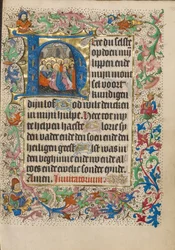 Here du selst
op doen mij
nipen ende
mijn mont
sel voort
kundigen
dijn lof God wilt dencken
in mijn hulpe Here tot my
te helpen haeste Glorie sy
den vader ende den soen ende den
heiligen geest Als it was in
den beghinne ende nu ende al
toes ende ewelic sonder eynde
Amen. Invitatorium